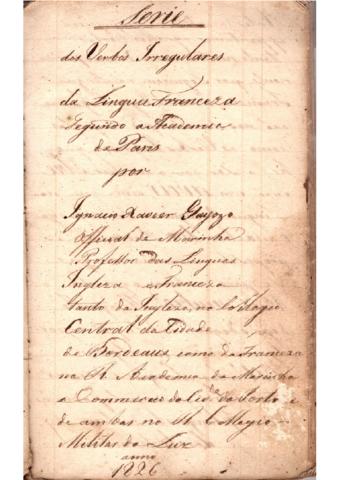 Serie
dos Verbos Irregulares
da Lingua Franceza
segundo a Academia
de Paris
por
Ignacio Xavier Gayozo
Official de Marinha
Professor das Linguas
Ingleza e Franceza
tanto da Ingleza, no Collegio
Central da Cidade
de Bordeaux, como da Franceza
na R. Academia da Marinha
e Commercio da Cid.e do Porto e
de ambas no R. Collegio
Militar da Luz
anno
1826